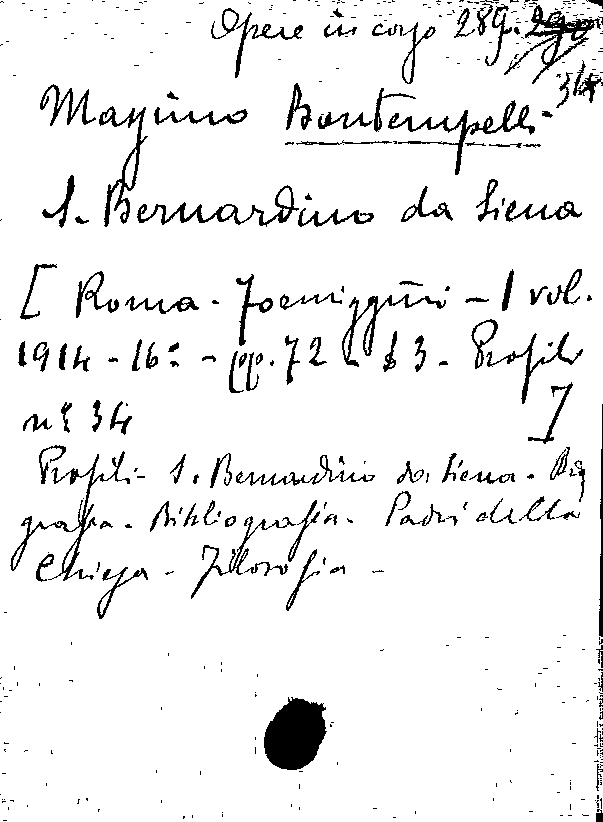 Opere in corso 289. 290
34
Massimo Bontempelli -
S. Bernardino da Siena
[ Roma - Formiggini - 1 vol.
1914 - 16º - pp. 72 - £ 3 - Profili
nº 34 ]
Profili - S. Bernardino da Siena - Bio
grafia - Bibliografia - Padri della
Chiesa - Filosofia -